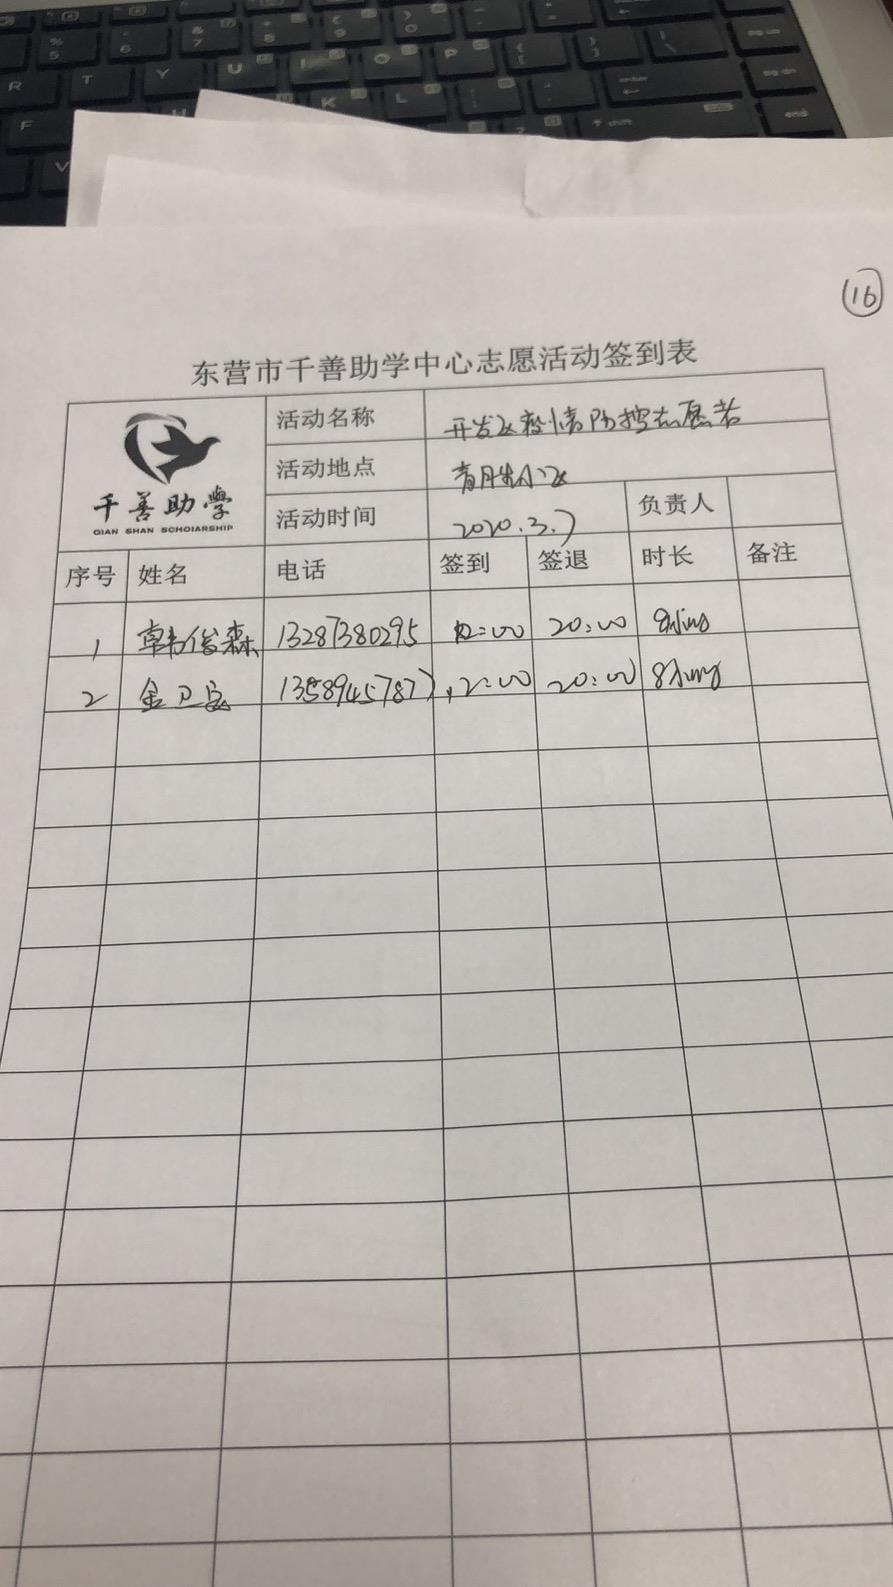 16
东营市千善助学中心志愿活动签到表
千善助學
QIAN SHAN SCHOIARSHIP
活动名称 开发区疫情防控志愿者
活动地点 小区
活动时间 2020.3.7 负责人
序号 姓名 电话 签到 签退 时长 备注
1 韩俊森 13287380295 12:00 20:00
2 金卫宝 13589457877 12:00 20:00